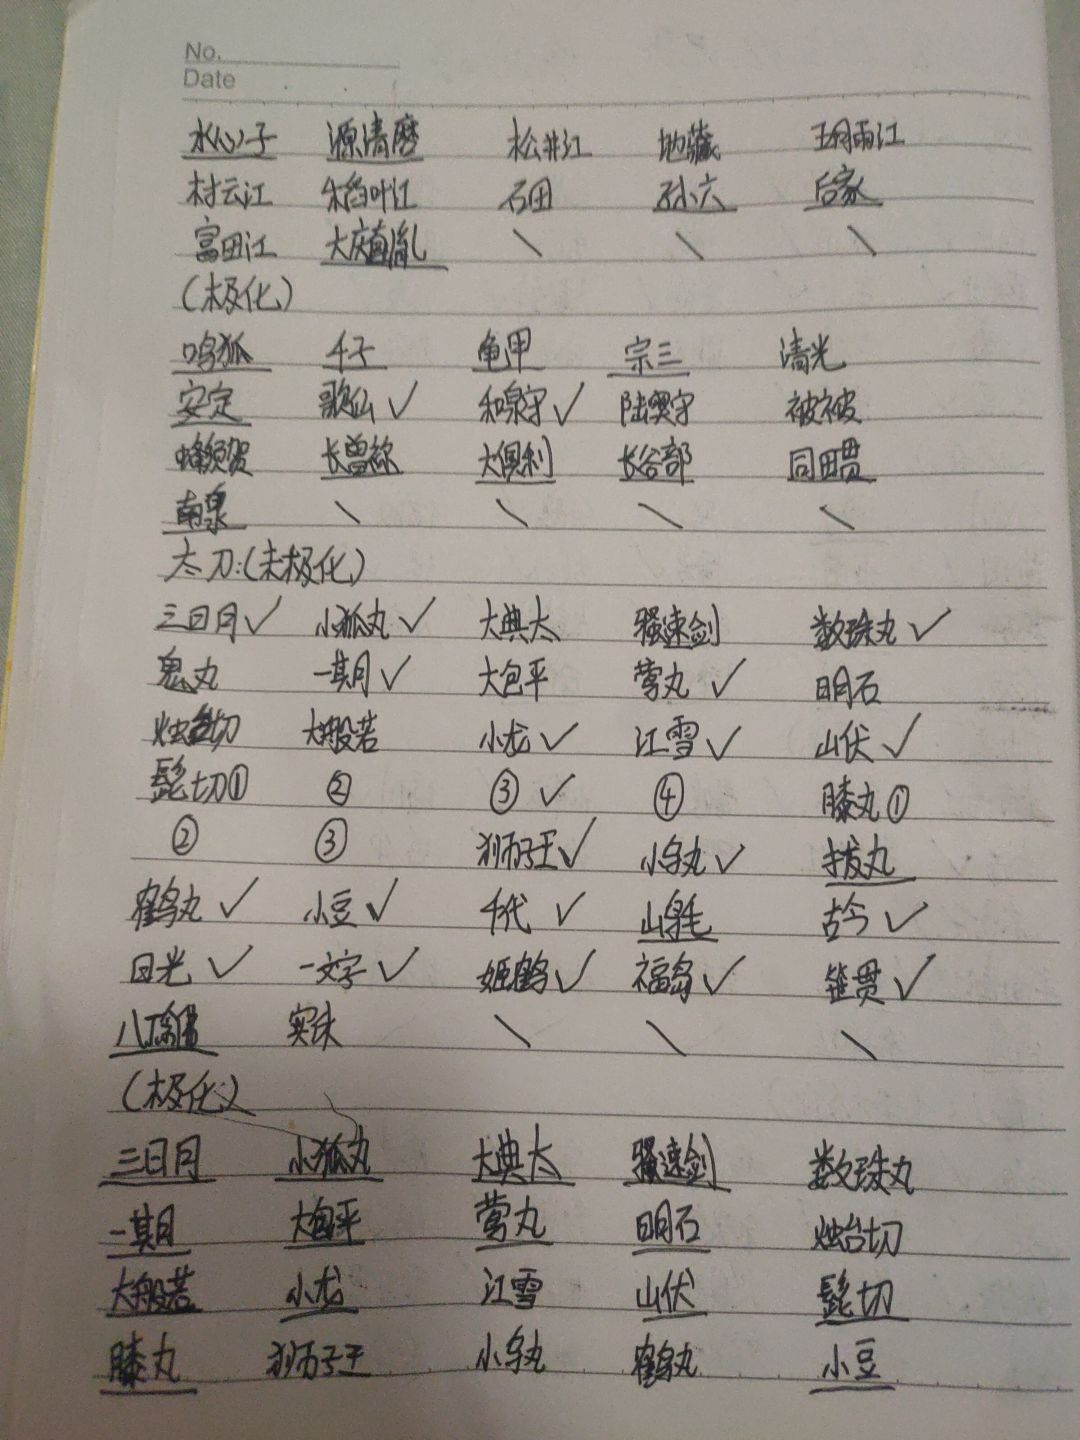 No.
Date
水心子 源清麿 松井江 地藏 五月雨江
村云江 稻叶江 石田 孙六 后家
富田江 大庆直胤 \ \ \
(极化)
鸣狐 千子 龟甲 宗三 清光
安定 歌仙✓ 和泉守✓ 陆奥守 被被
蜂须贺 长曾祢 大俱利 长谷部 同田贯
南泉 \ \ \ \
太刀:(未极化)
三日月✓ 小狐丸✓ 大典太 骚速剑 数珠丸✓
鬼丸 一期✓ 大包平 莺丸✓ 明石
烛台切 大般若 小龙✓ 江雪✓ 山伏✓
髭切① ② ③✓ ④ 膝丸①
② ③ 狮子王✓ 小乌丸✓ 拔丸
鹤丸✓ 小豆✓ 千代✓ 山鸟毛 古今✓
日光✓ 一文字✓ 姬鹤✓ 福岛✓ 笹贯✓
八丁 实休 \ \ \
(极化)
三日月 小狐丸 大典太 骚速剑 数珠丸
一期 大包平 莺丸 明石 烛台切
大般若 小龙 江雪 山伏 髭切
膝丸 狮子王 小乌丸 鹤丸 小豆